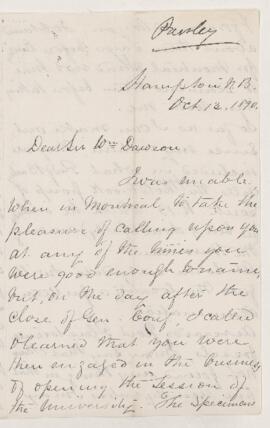 Hampton N.B.
Oct 12. 1890.
Dear Sir Wm Dawson
I was unable,
when in Montreal, to take the
pleasure of calling upon you
at any of the times you
were good enough to name,
but, on the day after the
close of Gen. Conf, I called
& learned that you were
then engaged in the business
of opening the session of
the University. The specimens